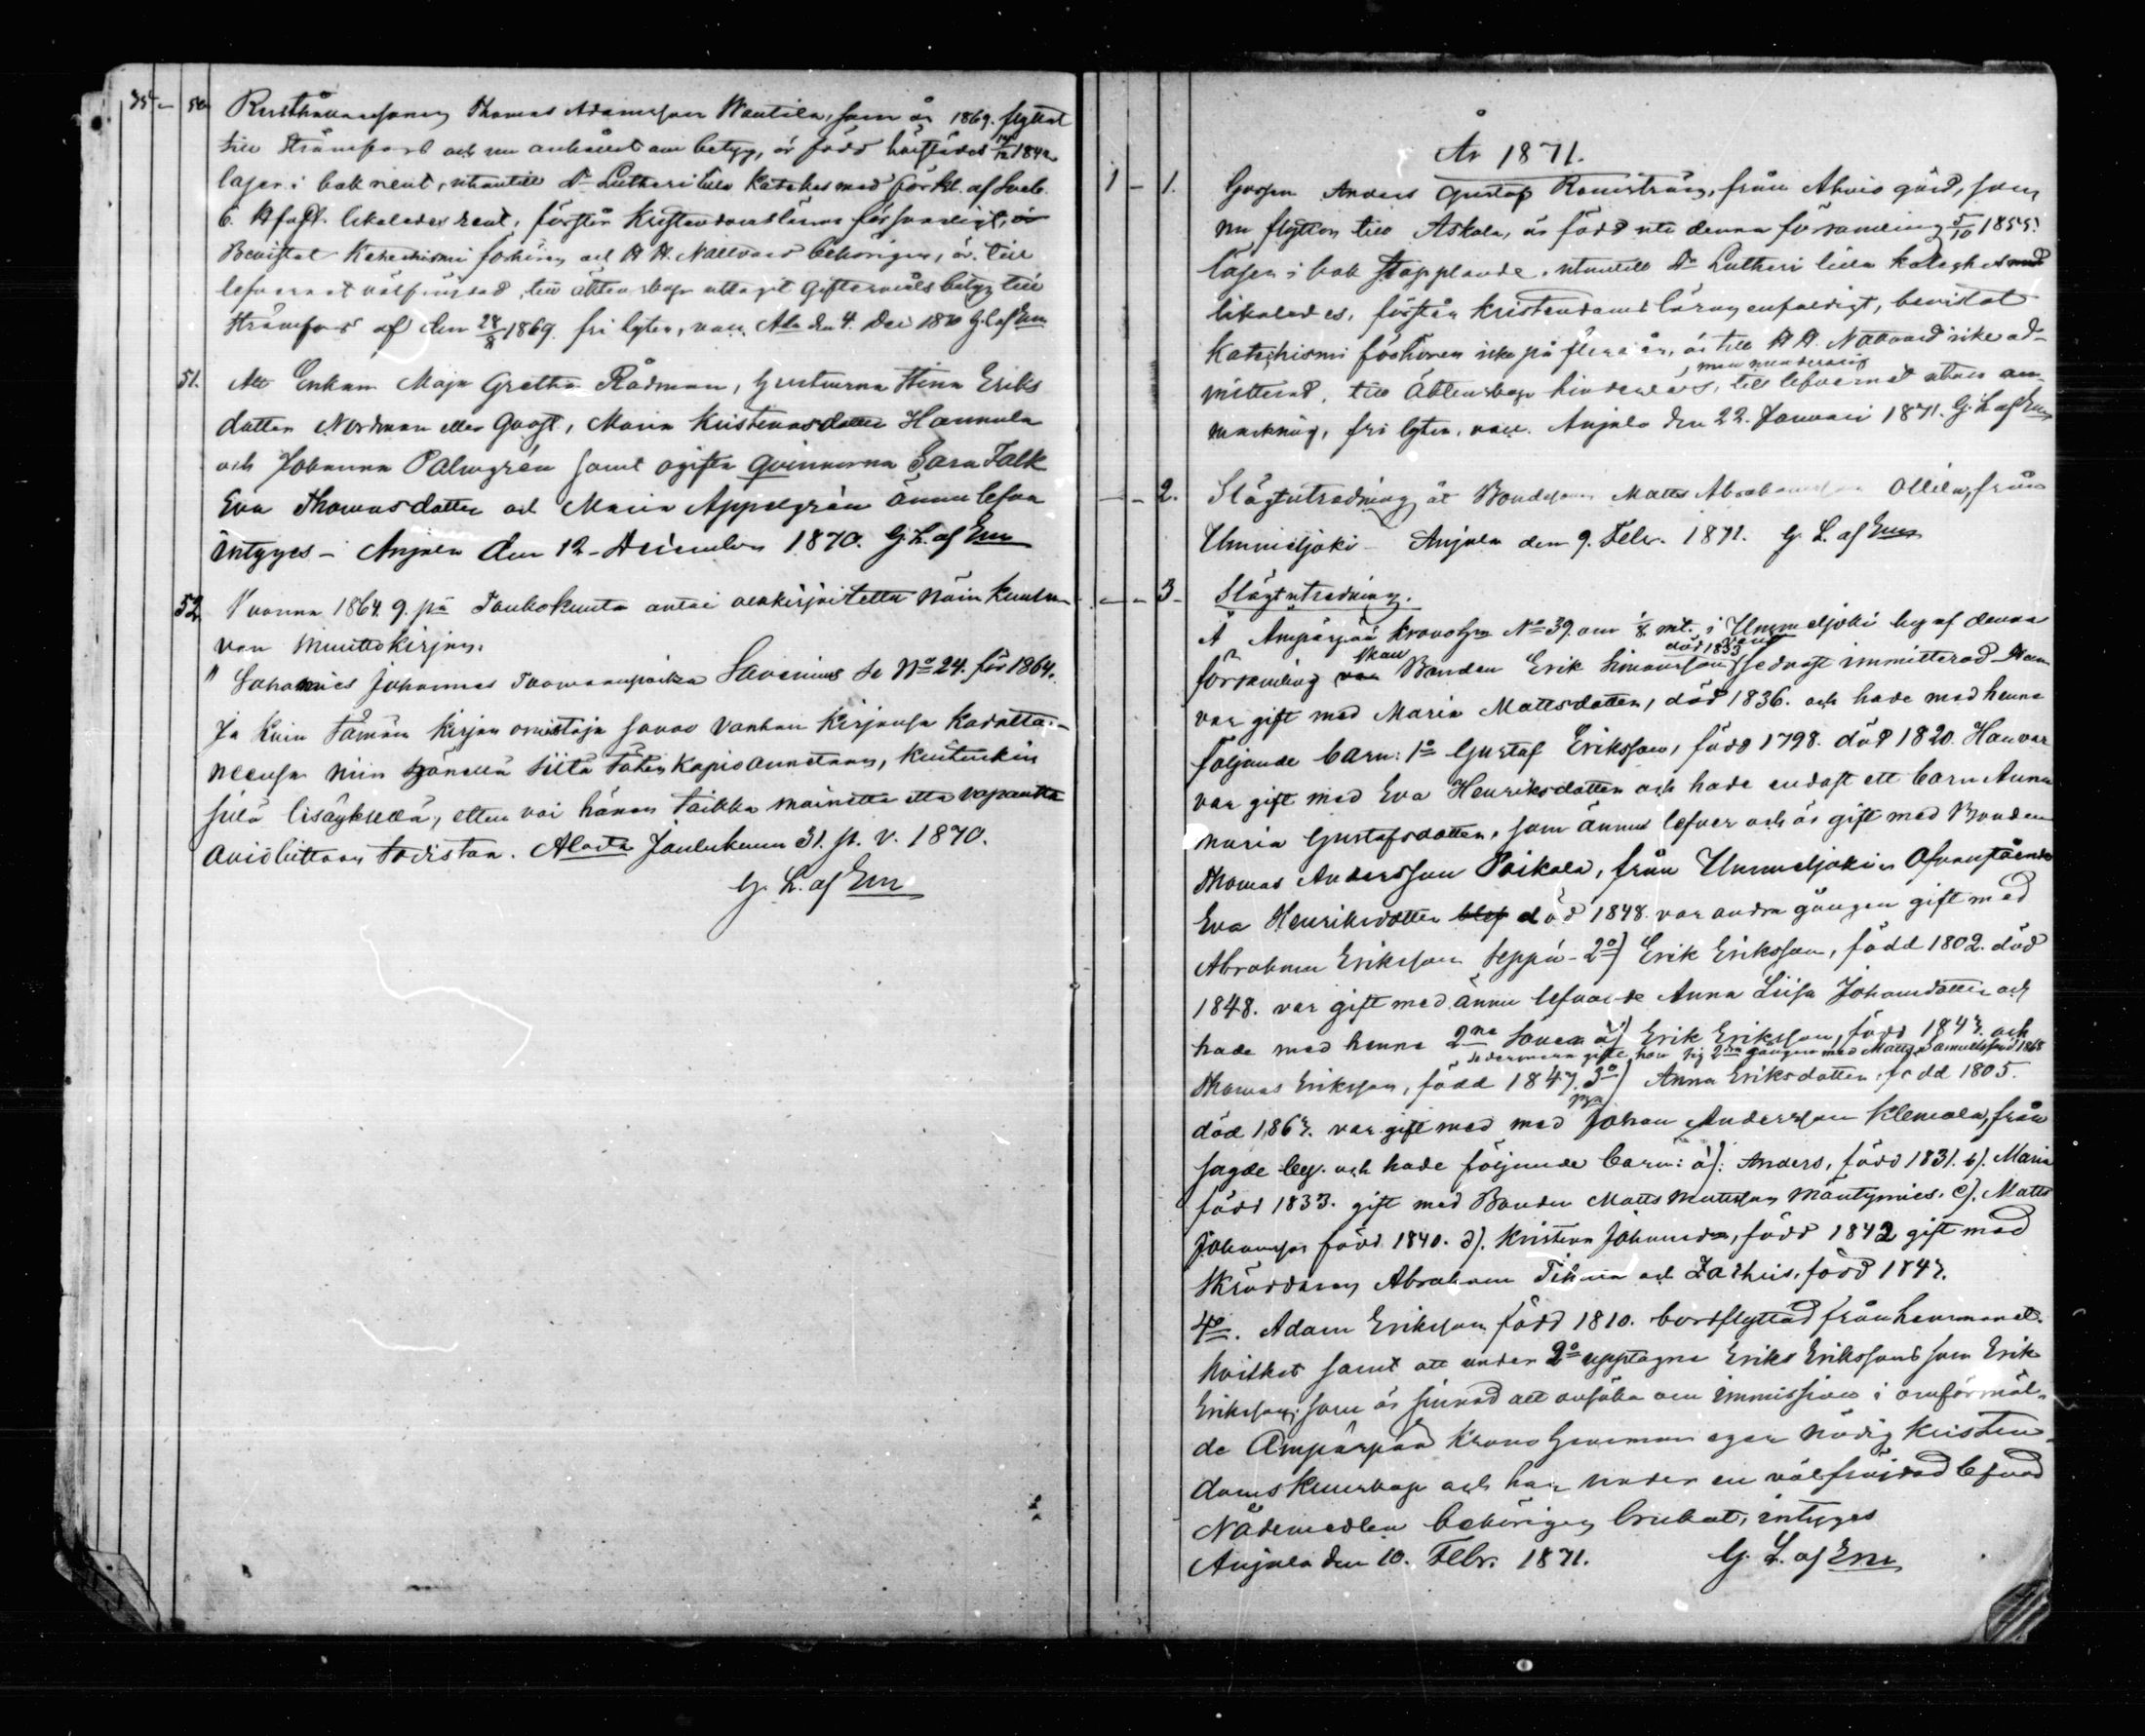 354 - 50. Rusthållaresonen Thomas Adamsson Wantila, som år 1869. flyttat
till Strömfors och nu anhållit om betyg, är född härstädes 14/12 1842
läser i bok rent, utantill Dr Lutheri lilla Katches med förkl. af Sveb.
likaledes rent, förstår Kristendomsläran försvarligt,
Bevistat Katechismi förhören och H. H. Nattvard behörigen, är till
lefvernet välfrejdad, till äktenskap uttagit Giftermåls betyg till
Strömfors af den 28/8 1869. fri lyten, vacc. Ala den 4. Dec 1870 G. L. af Em
51. Att Enkan Maja Gretha Rådman, Hustrurna Stina Eriks
dotter Nordman eller Qvast, Maria Kristersdotter Hannula
och Johanna Palmgrén samt ogifta qvinnorna Sara Falk
Eva Thomasdotter och Maria Appelgrén ännu lefva
intygas - Anjala den 12 December 1870. G. L. af Em
52. Vuonna 1864 9. pä Toukokuuta antoi allekirjoitettu näin kuulu-
van muuttokirjan.
" Johannes Tuomaanpoika Savenius se No 24. för 1864.
Ja kuin tämän kirjan omistaja sanoo vanhan kirjansa kadotta-
neensa niin hänellä siitä täten kapio annetaan, kuitenkin
sillä lisäyksellä, etten voi hänen taikka mainetta että vapautta
avioliittoon todistaa. Alasta Joulukuun 31. p. v. 1870.
G. L. af Em
År 1871.
1 - 1. Gossen Anders Gustaf Renström, från Ahvio gård, som
nu flyttar till Askola, är född uti denna församling 5/10 1855.
läser i bok stapplande, utantill Dr Lutheri lilla kateches
likaledes, förstår Kristendomsläran enfaldigt, bevistat
Katechismi förhören icke på flera år, är till H. H. Nattvard icke ad-
mitterad, till äktenskap hinderlös, men minderårig, till lefvernet utan an-
märkning, fri lyten, vacc. Anjala den 22. Januari 1871. G. L. af Em
- - 2. Slägtutredning åt Bondesonen Matts Abrahamsson Ollila, från
Ummeljoki - Anjala den 9. Febr. 1871. G. L. af Em
- - 3. Slägtutredning.
Å Ampärpää Kronohem No 39. om 1/8 mt. i Ummeljoki by af denna
församling skall Bonden Erik Simonsson död 1833 vara sednast immitterad. Han
var gift med Maria Mattsdotter, död 1836. och hade med henne
följande barn: 1o Gustaf Eriksson, född 1798. död 1820. Han var
var gift med Eva Henriksdotter och hade endast ett barn Anna
Maria Gustafsdotter, som ännu lefver och är gift med Bonden
Thomas Andersson Poikola, från Ummeljoki. Ofvanstående
Eva Henriksdotter blef död 1848. var andra gången gift med
Abraham Eriksson Seppä - 2o) Erik Eriksson, född 1802. död
1848. var gift med ännu lefvande Anna Lisa Johansdotter och
hade med henne 2ne Söner a) Erik Eriksson, född 1843. och
Thomas Eriksson, född 1847. sedermera gifte hon sig 2dra gången med Matts Samuelsson 1868 3o) Anna Eriksdotter, född 1805.
död 1867. var gift med med Johan Andersson Klemola, från
sagde by. och hade följande barn: a). Anders, född 1831. b). Maria
född 1833. gift med Bonden Matts Mattsson Mäntymies. c). Matts
Johansson född 1840. d). Kristina Johansdr, född 1842 gift med
Skräddaren Abraham Tihma och Zachris, född 1847.
4o. Adam Eriksson född 1810. bortflyttad från hemmanet.
hvilket samt att under 2o upptagne Eriks Erikssons son Erik
Eriksson, som är sinnad att ansöka om immission i omförmäl-
de Ampärpää Krono Hemman eger nödig Kristen-
domskunskap och har under en välfrejdad lefnad
Nådemedlen behörigen brukat, intygas
Anjala den 10. Febr. 1871. G. L. af Em